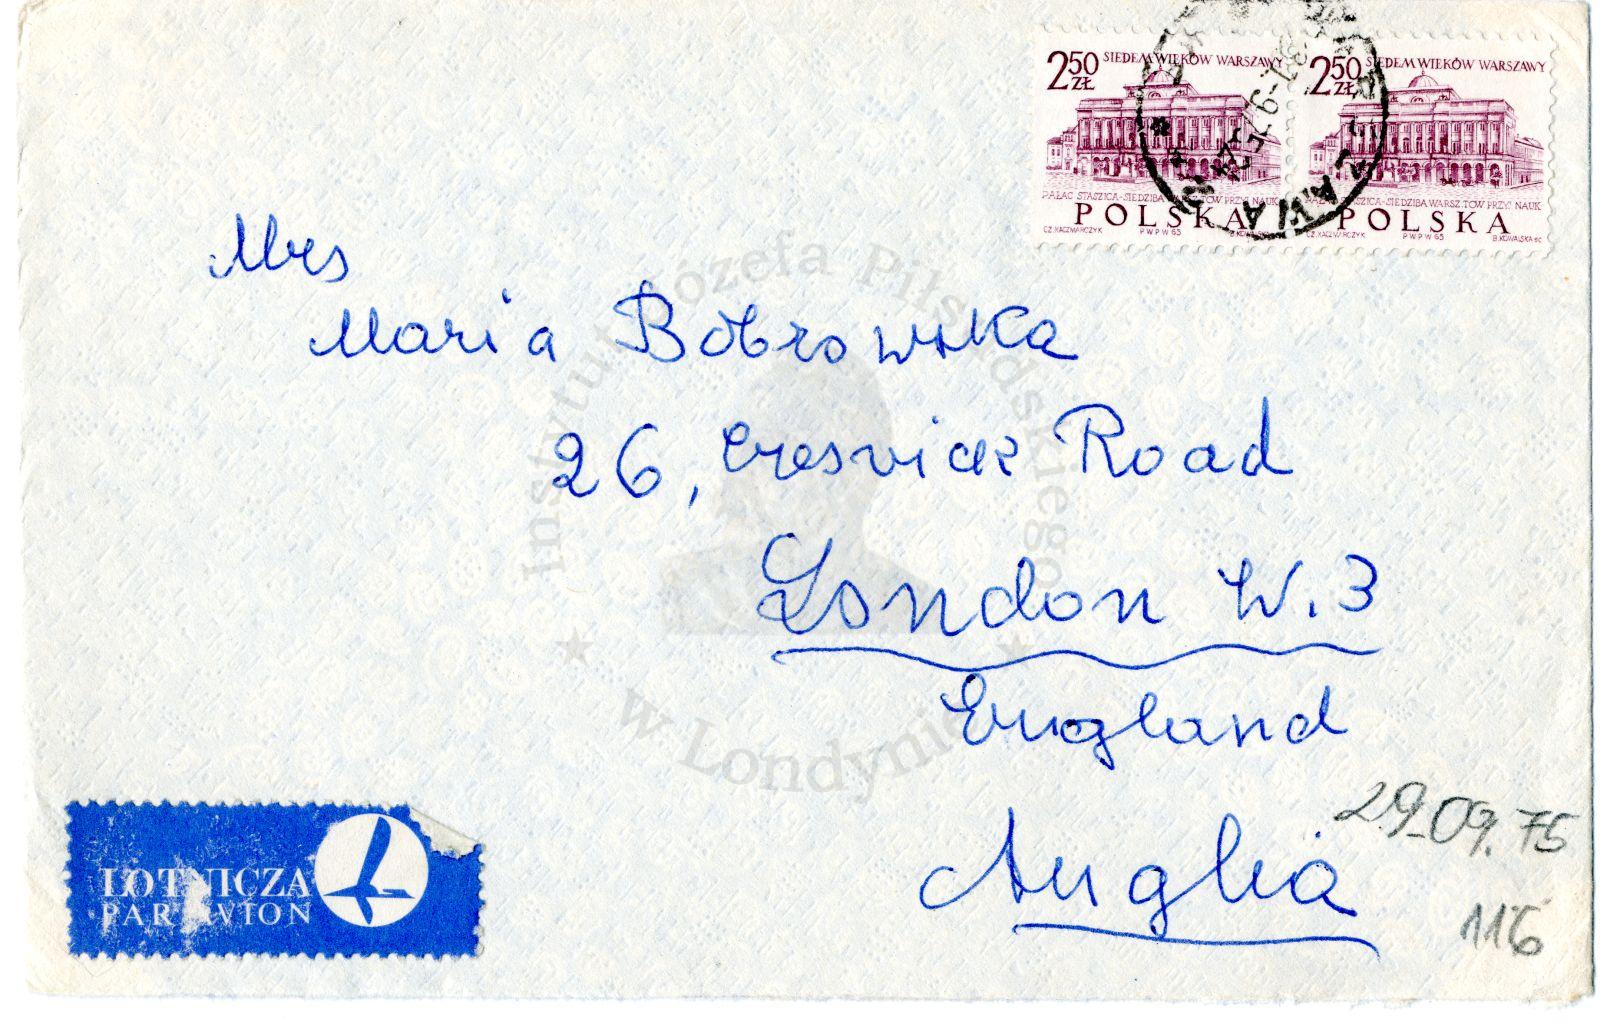 2 50 ZŁ SIEDEM WIEKÓW WARSZAWY
PAŁAC STASZICA-SIEDZIBA WARSZ.TOW.PRZYJ.NAUK
POLSKA
CZ.KACZMARCZYK PWPW 65 B.KOWALSKA
2 50 ZŁ SIEDEM WIEKÓW WARSZAWY
STASZICA-SIEDZIBA WARSZ.TOW.PRZYJ.NAUK
POLSKA
CZ.KACZMARCZYK PWPW 65 B.KOWALSKA sc
Mrs
Maria Bobrowska
26, Cresvick Road
London W.3
England
Anglia
29.09.75
116
LOTNICZA
PAR AVION
Instytut Józefa Piłsudskiego
w Londynie